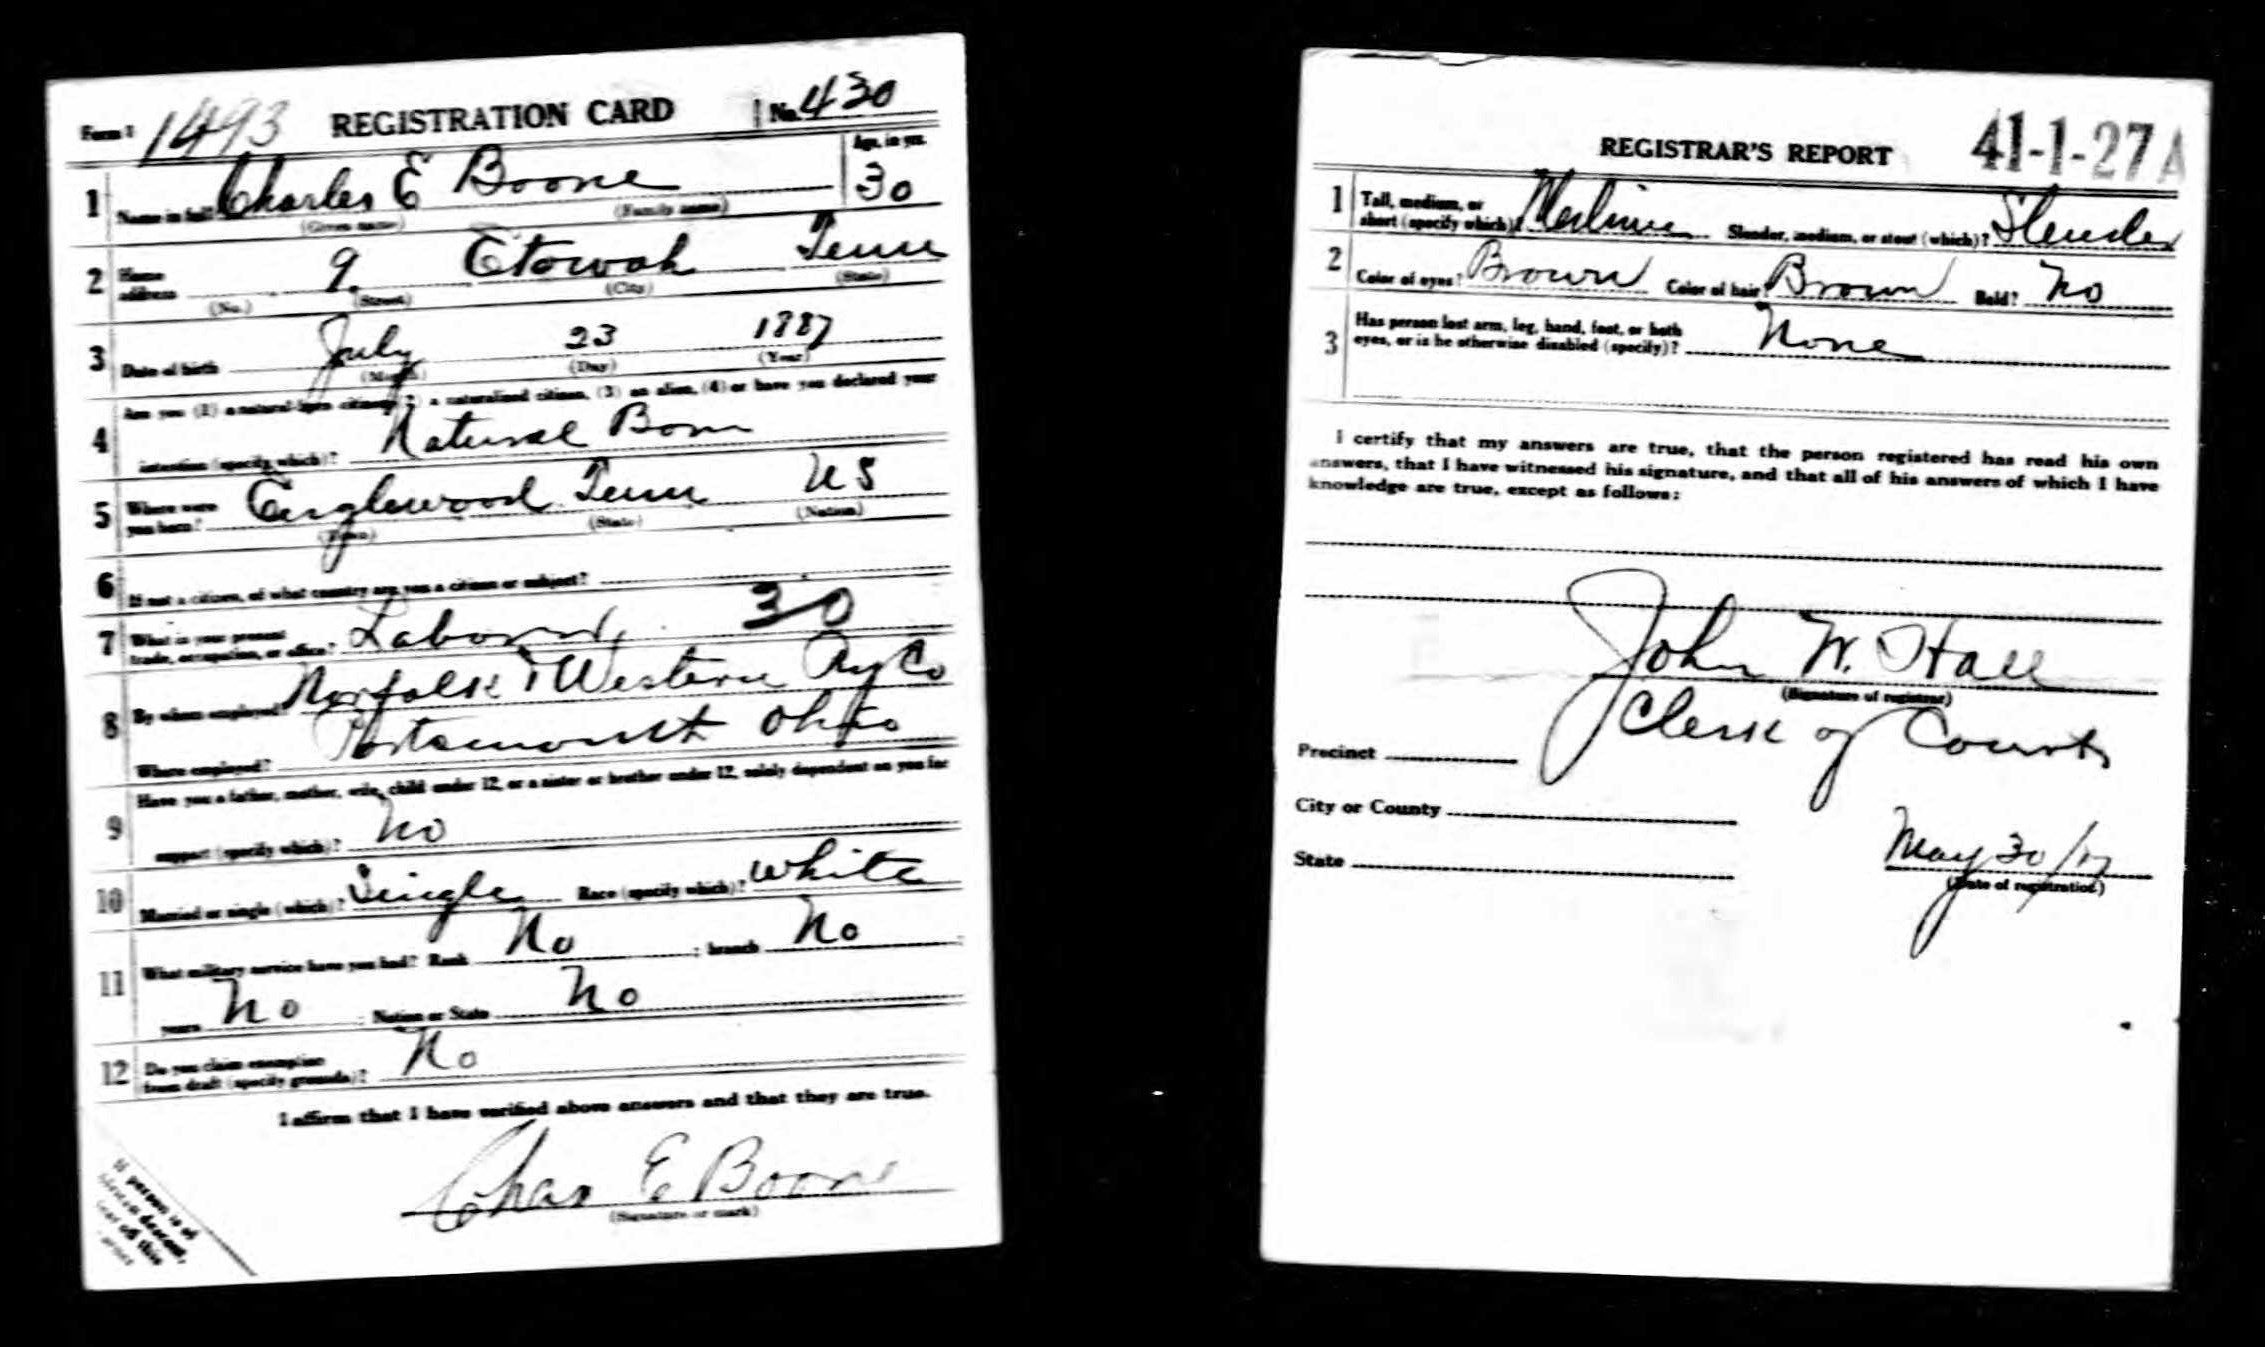 Form 1 1493 REGISTRATION CARD No. 430
1 Name in full Charles E Boone Age, in yrs. 30
(Given name) (Family name)
2 Home address 9. Etowah Tenn
(No.) (Street) (City) (State)
3 Date of birth July 23 1887
(Month) (Day) (Year)
Are you (1) a natural-born citizen, (2) a naturalized citizen, (3) an alien, (4) or have you declared your
4 intention (specify which)? Natural Born
5 Where were you born? Englewood Tenn US
(Town) (State) (Nation)
6 If not a citizen, of what country are you a citizen or subject?
7 What is your present trade, occupation, or office? Laborer 30
8 By whom employed? Norfolk & Western Ry Co
Where employed? Portsmouth Ohio
Have you a father, mother, wife, child under 12, or a sister or brother under 12, solely dependent on you for
9 support (specify which)? No
10 Married or single (which)? Single Race (specify which)? White
11 What military service have you had? Rank No ; branch No ;
years No ; Nation or State No
12 Do you claim exemption from draft (specify grounds)? No
I affirm that I have verified above answers and that they are true.
Chas E Boone
(Signature or mark)
If person is of
African descent,
tear off this
corner
REGISTRAR'S REPORT 41-1-27 A
1 Tall, medium, or short (specify which)? Medium Slender, medium, or stout (which)? Slender
2 Color of eyes? Brown Color of hair? Brown Bald? No
3 Has person lost arm, leg, hand, foot, or both eyes, or is he otherwise disabled (specify)? None
I certify that my answers are true, that the person registered has read his own
answers, that I have witnessed his signature, and that all of his answers of which I have
knowledge are true, except as follows:
John W. Hall
(Signature of registrar)
Clerk of Courts
Precinct
City or County
State
May 30/17
(Date of registration)